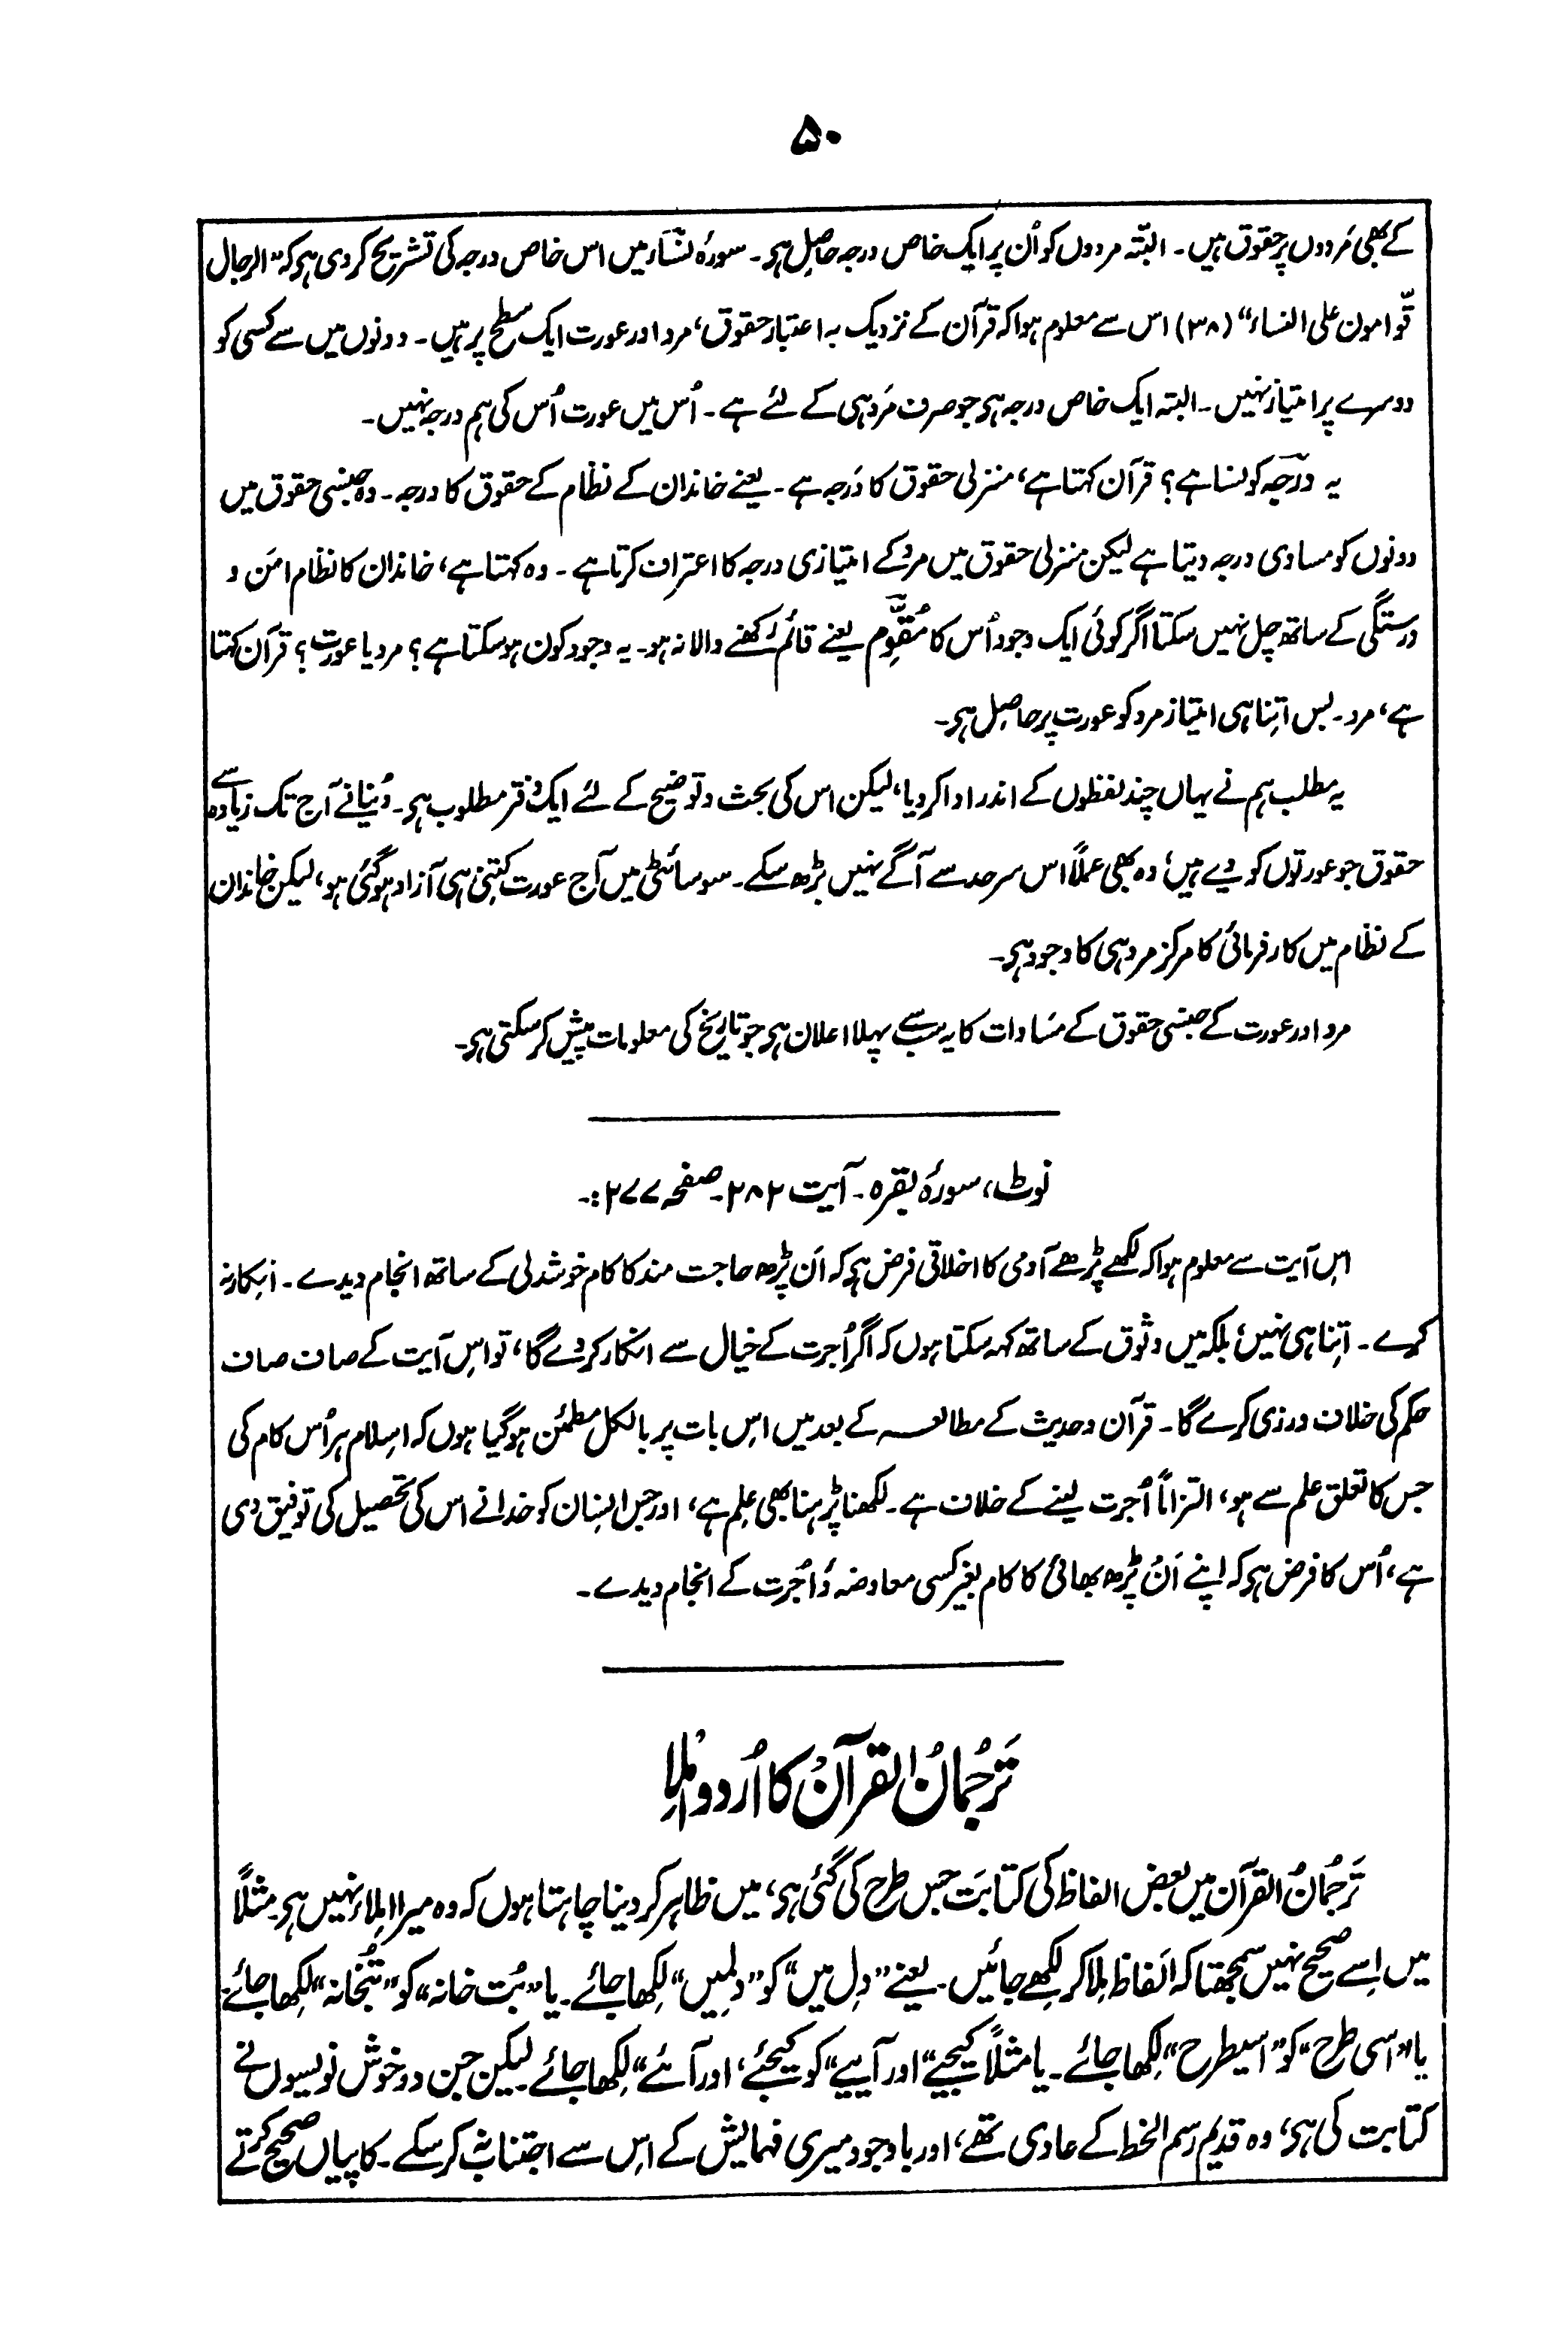 ۵۰
کے بھی مَردوں پر حقوق ہیں۔ البتّہ مردوں کو اُن پر ایک خاص درجہ حاصِل ہی۔ سورۂ نسَّاء میں اس خاص درجہ کی تشریح کر دی ہی کہ "الرجال
قوّامون علی النساء" (۳۸) اس سے معلوم ہوا کہ قرآن کے نزدیک بہ اعتبار حقوق، مرد اور عورت ایک سطح پر ہیں۔ دونوں میں سے کسی کو
دوسرے پر امتیاز نہیں۔ البتہ ایک خاص درجہ ہی جو صرف مَرد ہی کے لئے ہے۔ اُس میں عورت اُس کی ہم درجہ نہیں۔
یہ درَجہ کونسا ہے؟ قرآن کہتا ہے، منزلی حقوق کا دَرجہ ہے۔ یعنے خاندان کے نظام کے حقوق کا درجہ۔ وہ جنسی حقوق میں
دونوں کو مساوی درجہ دیتا ہے لیکن منزلی حقوق میں مرد کے امتیازی درجہ کا اعتراف کرتا ہے۔ وہ کہتا ہے، خاندان کا نظام امَن و
درستگی کے ساتھ چل نہیں سکتا اگر کوئی ایک وجود اُس کا مُقَوِّم یعنے قائم رکھنے والا نہ ہو۔ یہ وجود کون ہو سکتا ہے؟ مرد یا عورت؟ قرآن کہتا
ہے، مرد۔ بس اتِنا ہی امتیاز مرد کو عورت پر حاصِل ہی۔
یہ مطلب ہم نے یہاں چند لفظوں کے اندر ادا کر دیا، لیکن اس کی بحث و توضیح کے لئے ایک دفتر مطلوب ہی۔ دُنیا نے آج تک زیادہ سے
حقوق جو عورتوں کو دیے ہیں، وہ بھی عملاً اس سرحد سے آگے نہیں بڑھ سکے۔ سوسائٹی میں آج عورت کتِنی ہی آزاد ہو گئی ہو، لیکن خاندان
کے نظام میں کارفرمائی کا مرکز مرد ہی کا وجود ہی۔
مرد اور عورت کے جنسی حقوق کے مسَاوات کا یہ سب سے پہلا اعلان ہی جو تاریخ کی معلومات پیش کر سکتی ہی۔
نوٹ، سورۂ بقرہ۔ آیت ۲۸۲۔ صفحہ ۲۷۷:۔
اِس آیت سے معلوم ہوا کہ لکھے پڑھے آدمی کا اخلاقی فرض ہی کہ اَن پڑھ حاجت مند کا کام خوشدلی کے ساتھ انجام دیدے۔ انِکار نہ
کرے۔ اتِنا ہی نہیں، بلکہ میں وثوق کے ساتھ کہہ سکتا ہوں کہ اگر اُجرت کے خیال سے انکار کر دے گا، تو اِس آیت کے صاف صاف
حکم کی خلاف ورزی کرے گا۔ قرآن و حدیث کے مطالعہ کے بعد میں اِس بات پر بالکل مطمئن ہو گیا ہوں کہ اسِلام ہر اُس کام کی
جس کا تعلق علم سے ہو، التزاماً اُجرت لینے کے خلاف ہے۔ لکھنا پڑہنا بھی علِم ہے، اور جس انِسان کو خدا نے اس کی تحصیل کی توفیق دی
ہے، اُس کا فرض ہی کہ اپنے اَن پڑھ بھائی کا کام بغیر کسی معاوضہ و اُجُرت کے انجام دیدے۔
تَرجُمانُ القرآن کا اُردو اِملا
تَرجُمانُ القرآن میں بعض الفاظ کی کتابَت جس طرح کی گئی ہی، میں ظاہر کر دینا چاہتا ہوں کہ وہ میرا اِملاء نہیں ہی۔ مثلاً
میں اِسے صحیح نہیں سمجھتا کہ الَفاظ مِلا کر لکِھے جائیں۔ یعنے "دِل میں" کو "دلِمیں" لکِھا جائے۔ یا "بُت خانہ" کو "بُتخانہ" لکِھا جائے۔
یا "اسی طرح" کو "اسیطرح" لکِھا جائے۔ یا مثلاً "کیجیے" اور "آییے" کو "کیجئے، اور آئے" لکِھا جائے۔ لیکن جن دو خوش نویسوں نے
کتابت کی ہی، وہ قدیم رسم الخط کے عادی تھے، اور باوجود میری فہمایش کے اِس سے اجتناب نہ کر سکے۔ کاپیاں صحیح کرتے